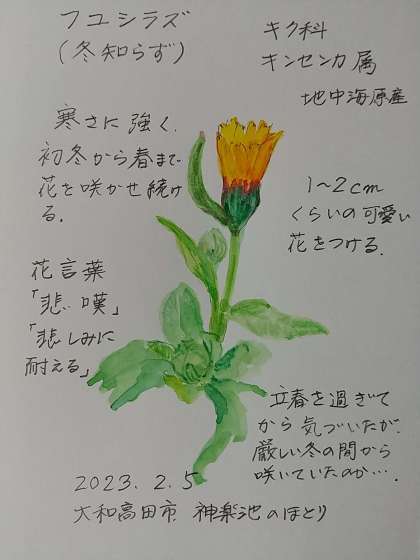 フユシラズ
(冬知らず)
キク科
キンセンカ属
地中海原産
寒さに強く、
初冬から春まで
花を咲かせ続け
る.
1~2cm
くらいの可愛い
花をつける.
花言葉
「悲嘆」
「悲しみに
耐える」
立春を過ぎて
から気づいたが、
厳しい冬の間から
咲いていたのか….
2023.2.5
大和高田市 神楽池のほとり